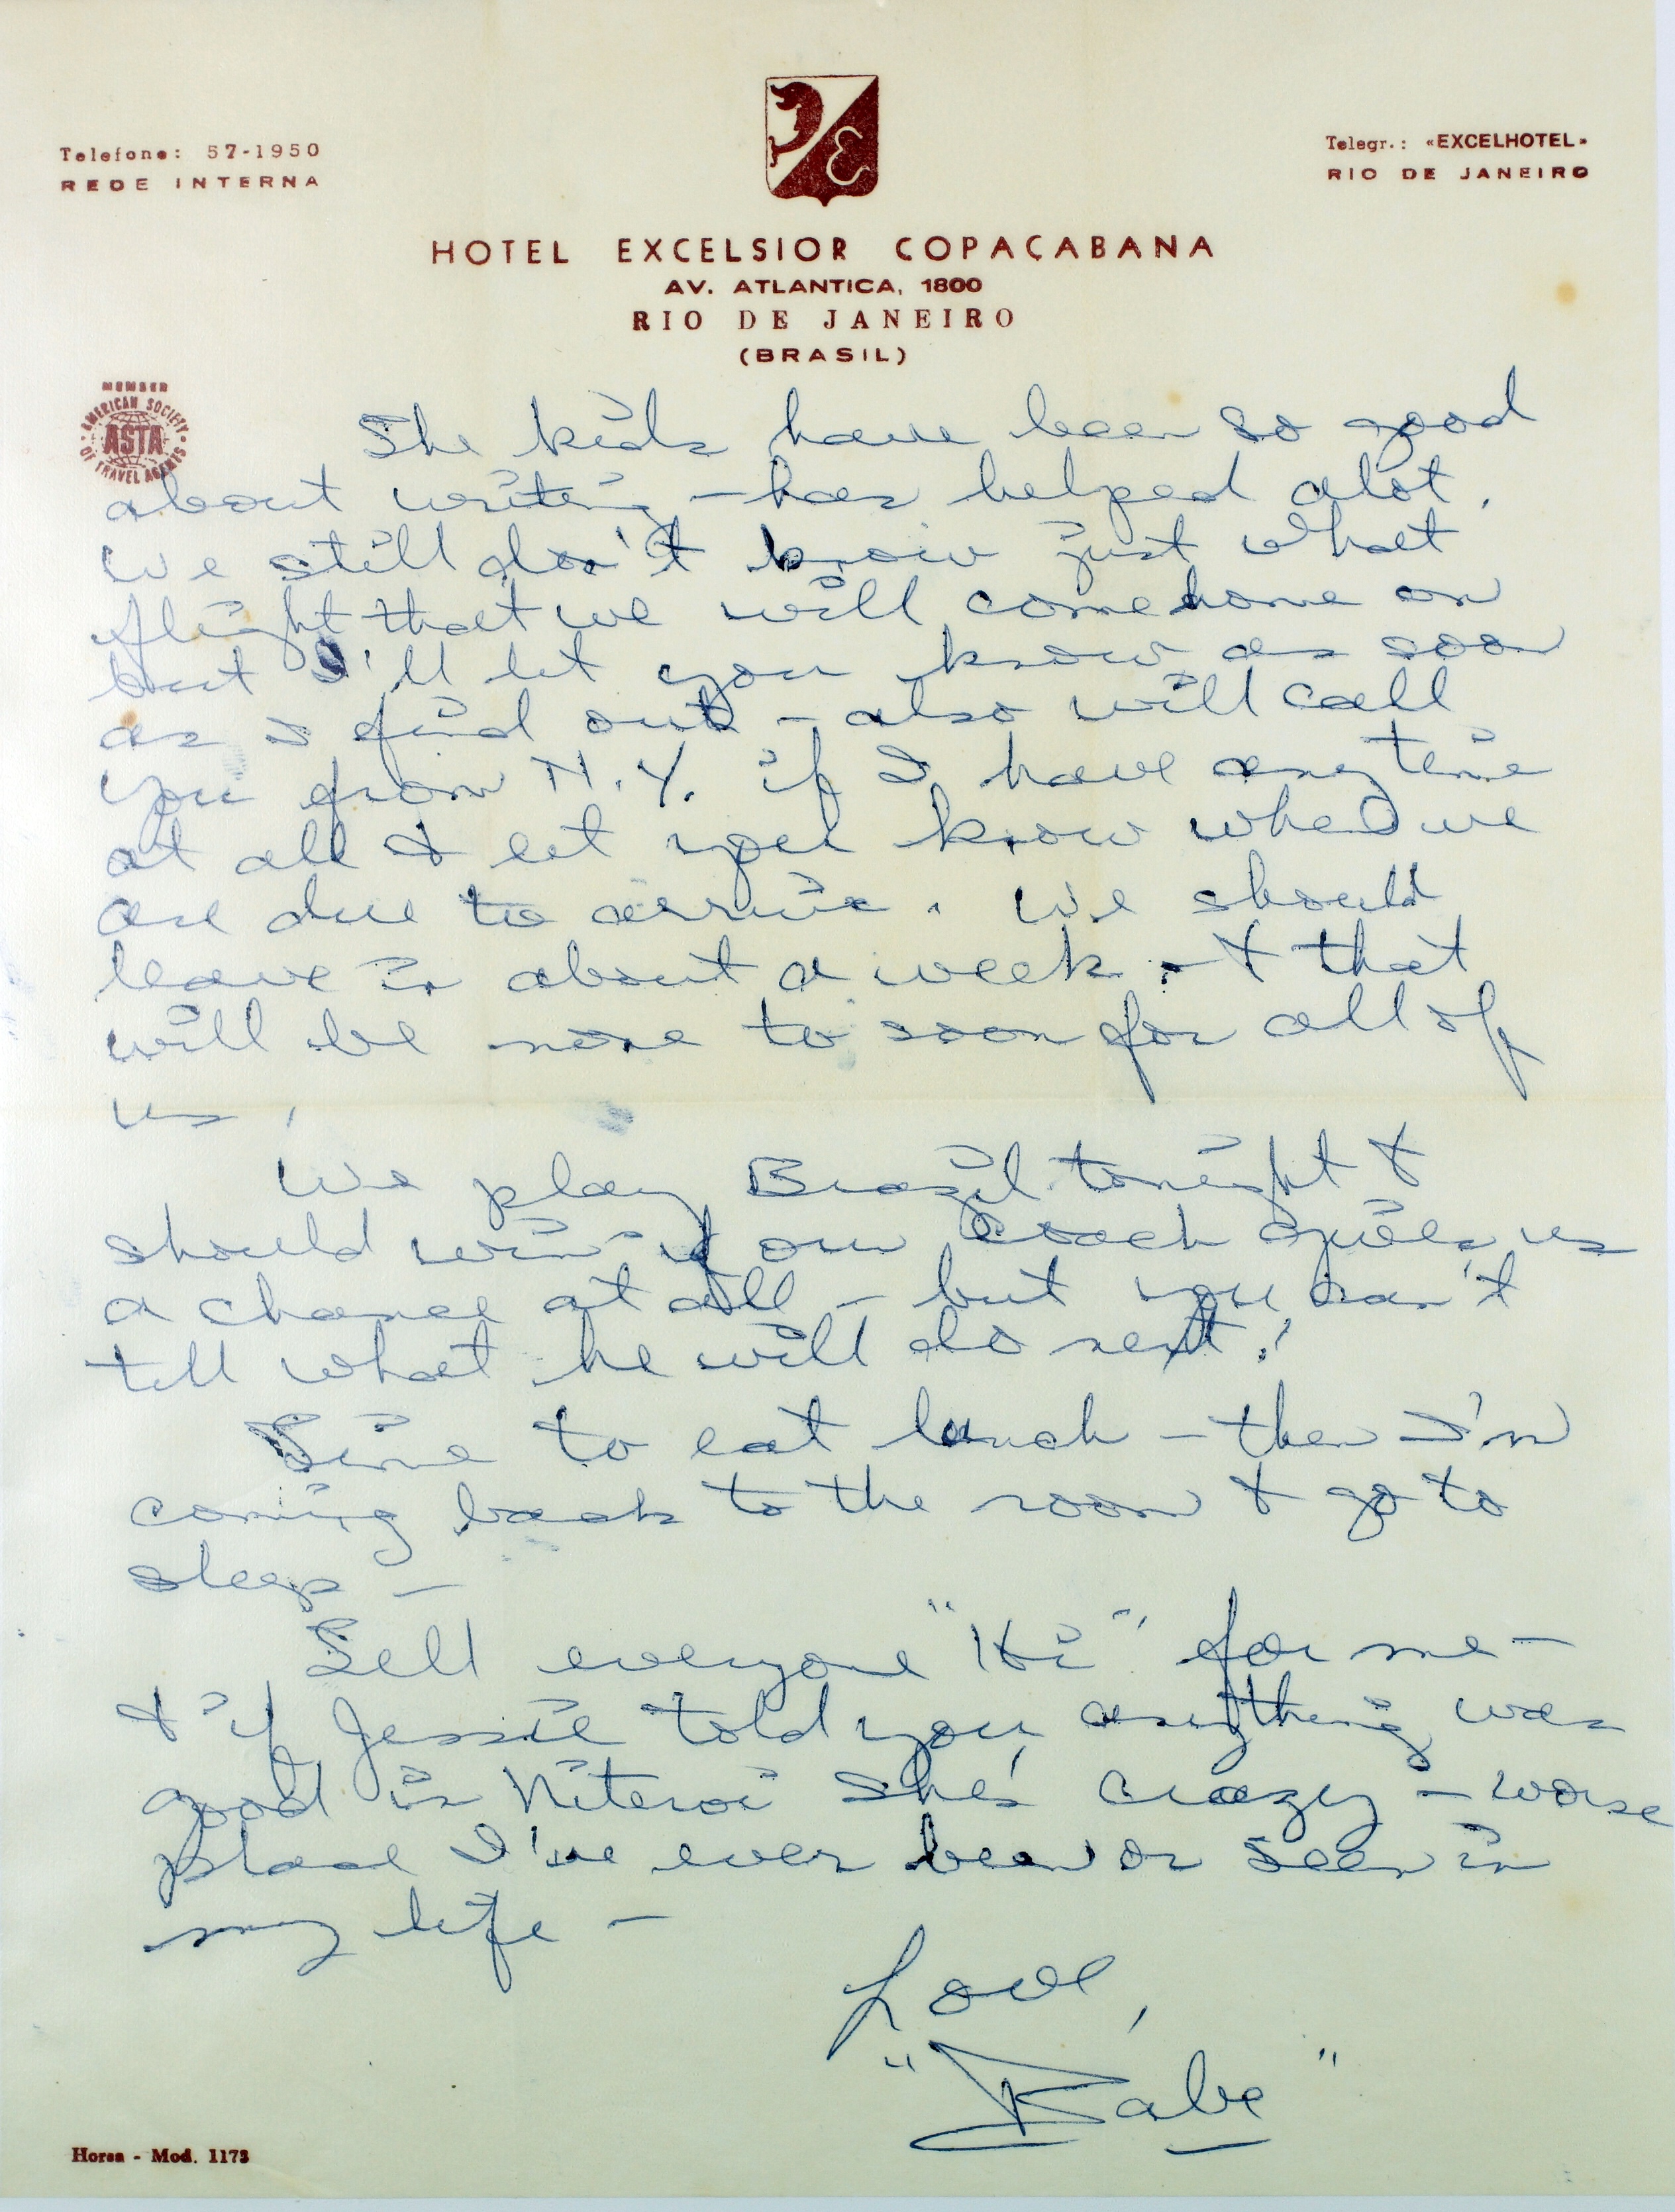 Telefone: 57-1950
REDE INTERNA
Telegr.: «EXCELHOTEL»
RIO DE JANEIRO
HOTEL EXCELSIOR COPACABANA
AV. ATLANTICA, 1800
RIO DE JANEIRO
(BRASIL)
MEMBER
AMERICAN SOCIETY
ASTA
OF TRAVEL AGENTS
The kids have been so good
about writing - has helped alot.
We still don't know just what
flight that we will come home on
but I'll let you know as soon
as I find out - also will call
you from N.Y. if I have any time
at all & let you know when we
are due to arrive. We should
leave in about a week - & that
will be none to soon for all of
us.
We play Brazil tonight &
should win if our coach gives us
a chance at all - but you can't
tell what he will do next!
Time to eat lunch - then I'm
coming back to the room & go to
sleep -
Tell everyone "Hi" for me -
& if Jessie told you anything was
good in Niteroi she's crazy - worse
place I've ever been or seen in
my life -
Love,
"Babe"
Horsa - Mod. 1173